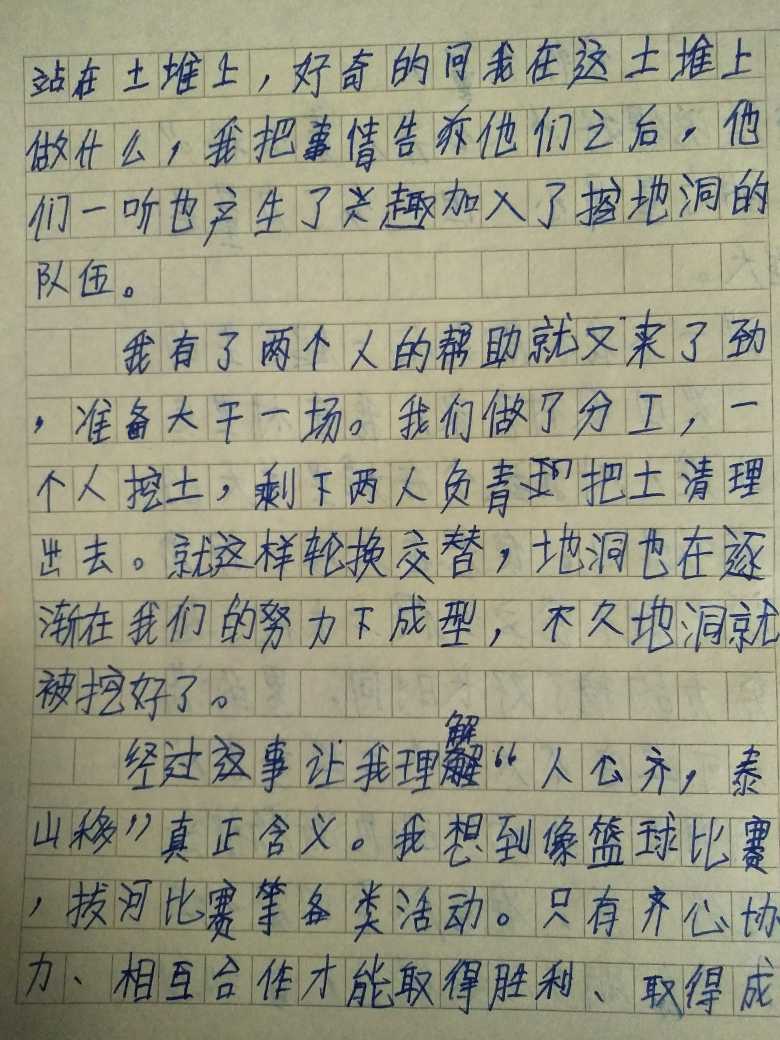 站在土堆上，好奇的问我在这土堆上
做什么，我把事情告诉他们之后，他
们一听也产生了兴趣加入了挖地洞的
队伍。
我有了两个人的帮助就又来了劲
，准备大干一场。我们做了分工，一
个人挖土，剩下两人负责把土清理
出去。就这样轮换交替，地洞也在逐
渐在我们的努力下成型，不久地洞就
被挖好了。
经过这事让我理解“人心齐，泰
山移”真正含义。我想到像篮球比赛
，拔河比赛等各类活动。只有齐心协
力、相互合作才能取得胜利、取得成